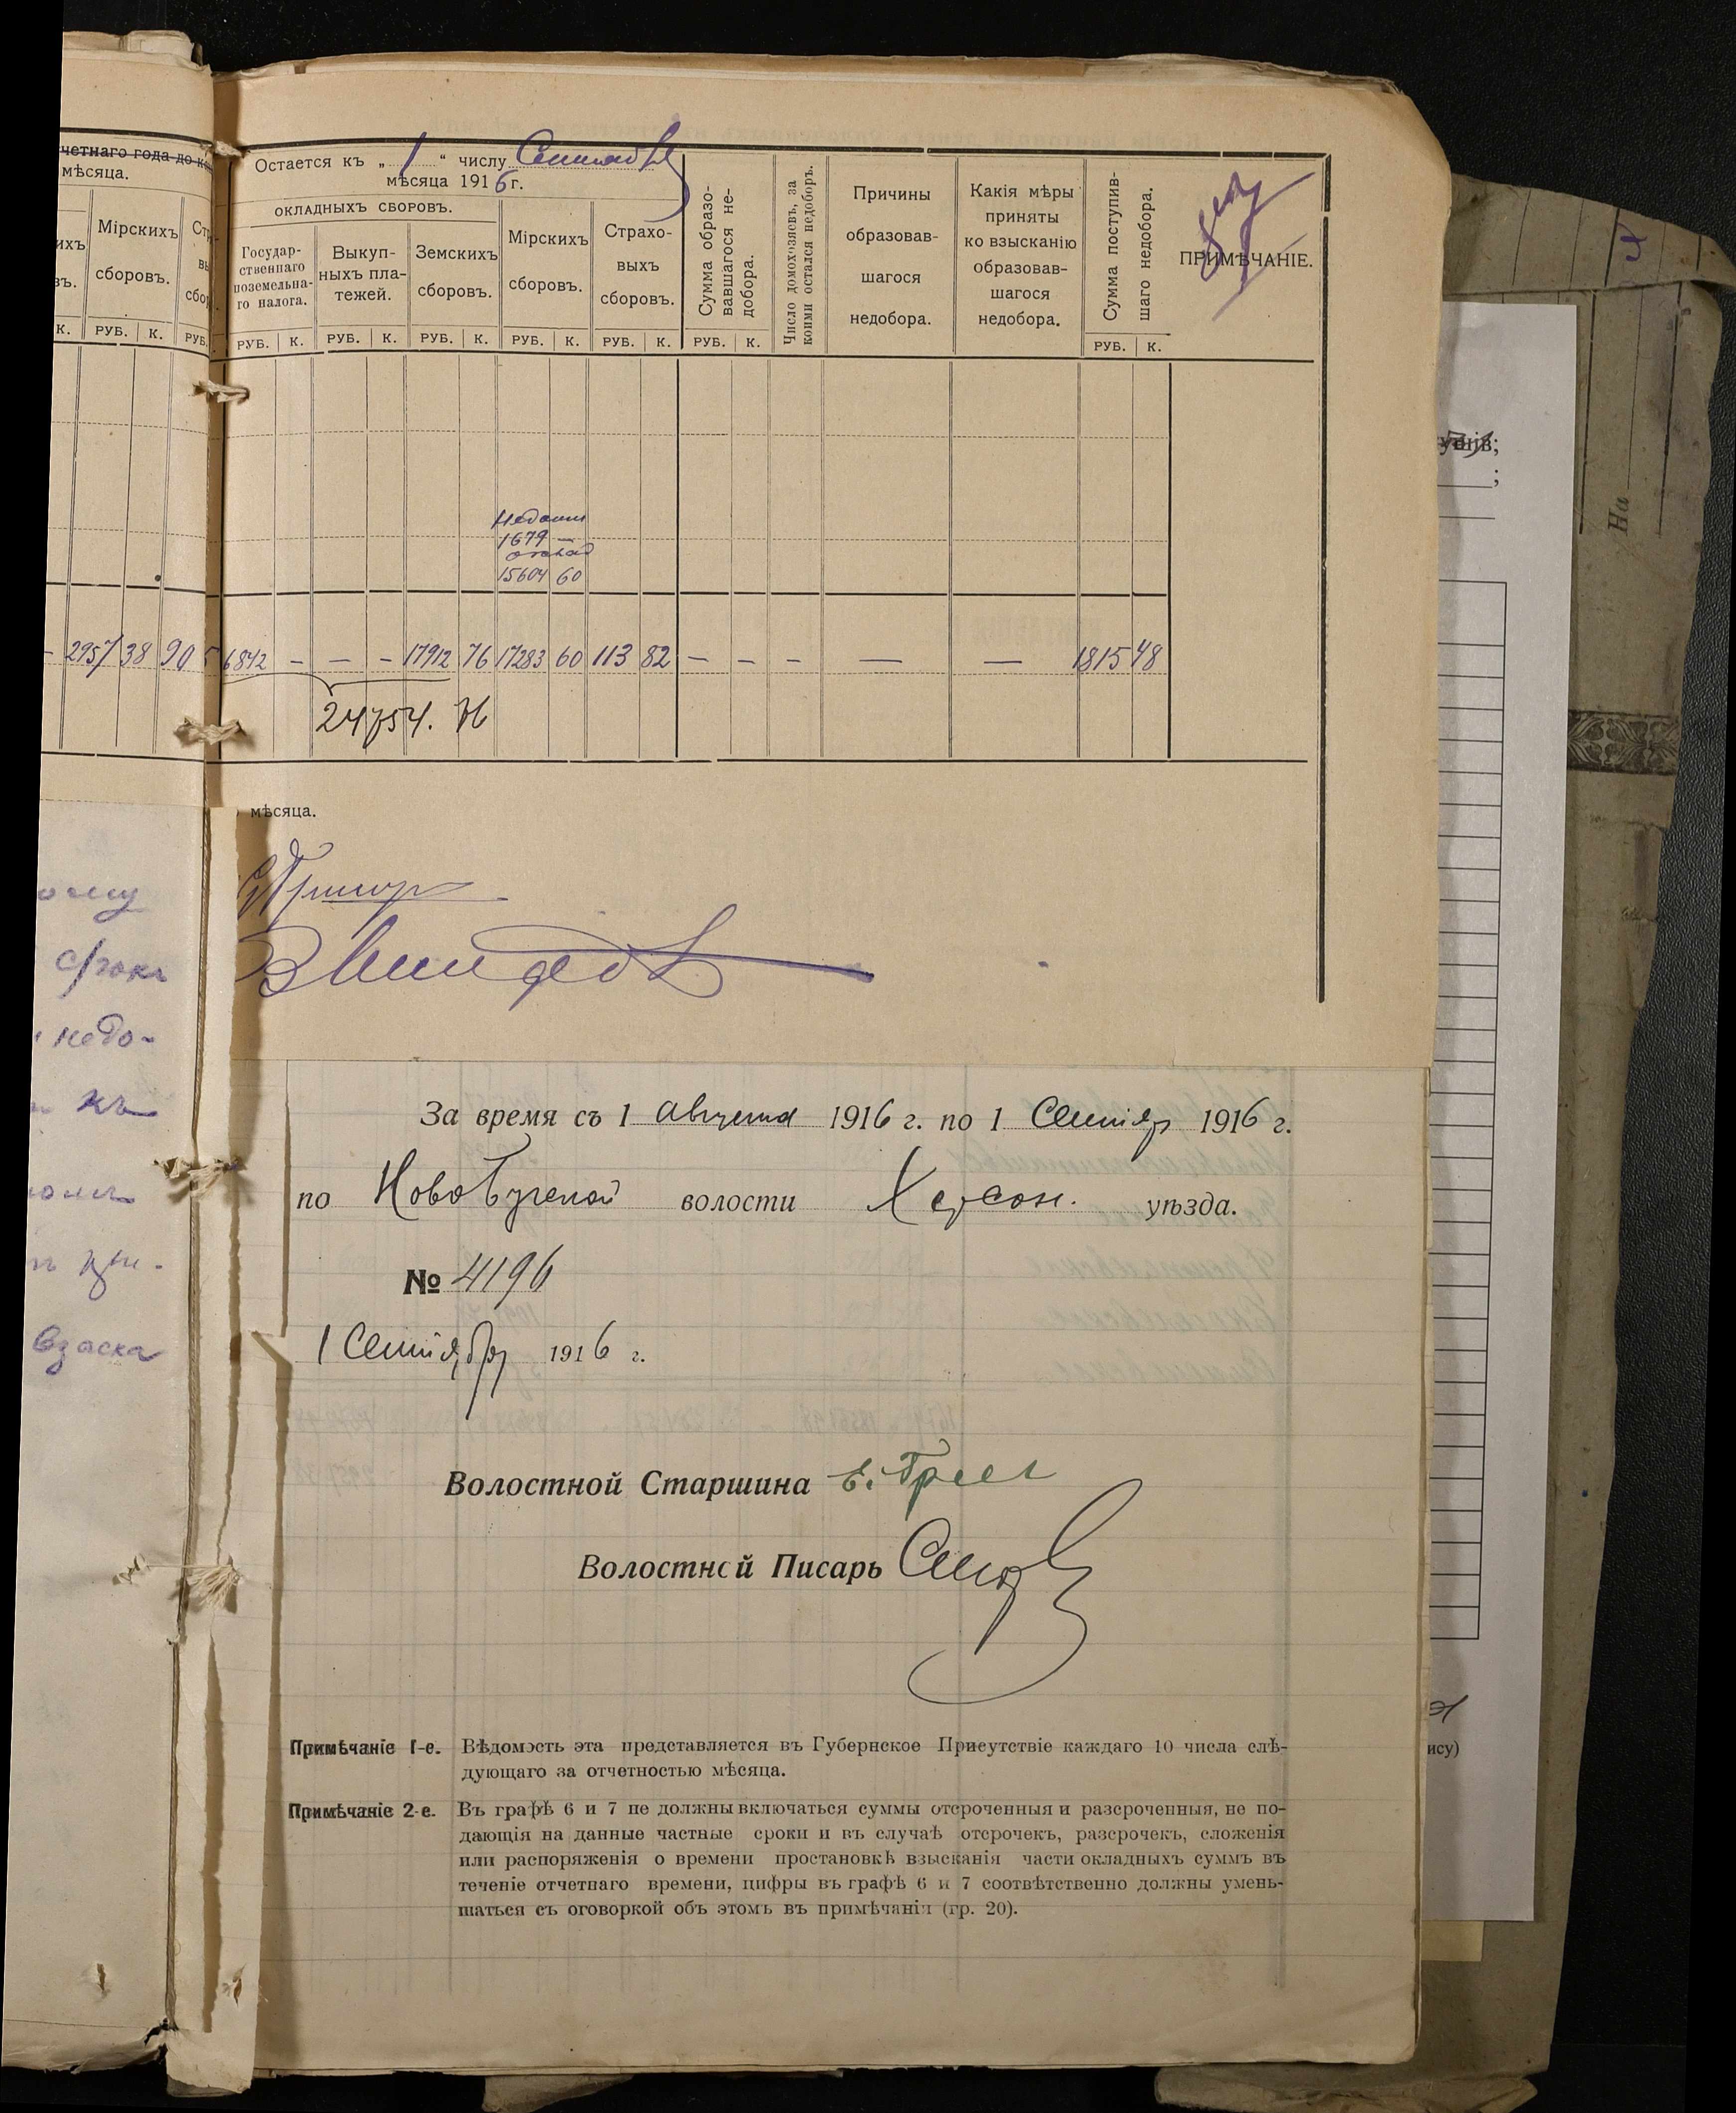 четнаго года до к
мѣсяца.
Мірскихъ
сборовъ.
К. РУБ. К. РУБ.
2957 38 90
Остается къ „ 1 “ числу Сентября
мѣсяца 1916 г.
ОКЛАДНЫХЪ СБОРОВЪ.
Государ-
ственнаго
поземельна-
го налога.
Выкуп-
ныхъ пла-
тежей.
Земскихъ
сборовъ.
Мірскихъ
сборовъ.
Страхо-
выхъ
сборовъ.
Сумма образо-
вавшагося не-
добора.
Число домохозяевъ, за
коими остался недоборъ.
Причины
образовав-
шагося
недобора.
Какія мѣры
приняты
ко взысканію
образовав-
шагося
недобора.
Сумма поступив-
шаго недобора.
ПРИМѢЧАНІЕ.
РУБ. К. РУБ. К. РУБ. К. РУБ. К. РУБ. К. РУБ. К. РУБ. К.
1679 —
оклад
15604 60
6842 — — — 17912 76 17283 60 113 82 — — — — — 1815 48
24754. 76
мѣсяца.
недо-
къ
За время съ 1 Августа 1916 г. по 1 Сентября 1916 г.
по Новобугской волости Херсон. уѣзда.
№ 4196
1 Сентября 1916 г.
Волостной Старшина
Волостной Писарь
Примѣчаніе 1-е. Вѣдомость эта представляется въ Губернское Присутствіе каждаго 10 числа слѣ-
дующаго за отчетностью мѣсяца.
Примѣчаніе 2-е. Въ графѣ 6 и 7 не должны включаться суммы отсроченныя и разсроченныя, не по-
дающія на данные частные сроки и въ случаѣ отсрочекъ, разсрочекъ, сложенія
или распоряженія о времени простановкѣ взысканія части окладныхъ суммъ въ
теченіе отчетнаго времени, цифры въ графѣ 6 и 7 соотвѣтственно должны умень-
шаться съ оговоркой объ этомъ въ примѣчаніи (гр. 20).
На
ису)